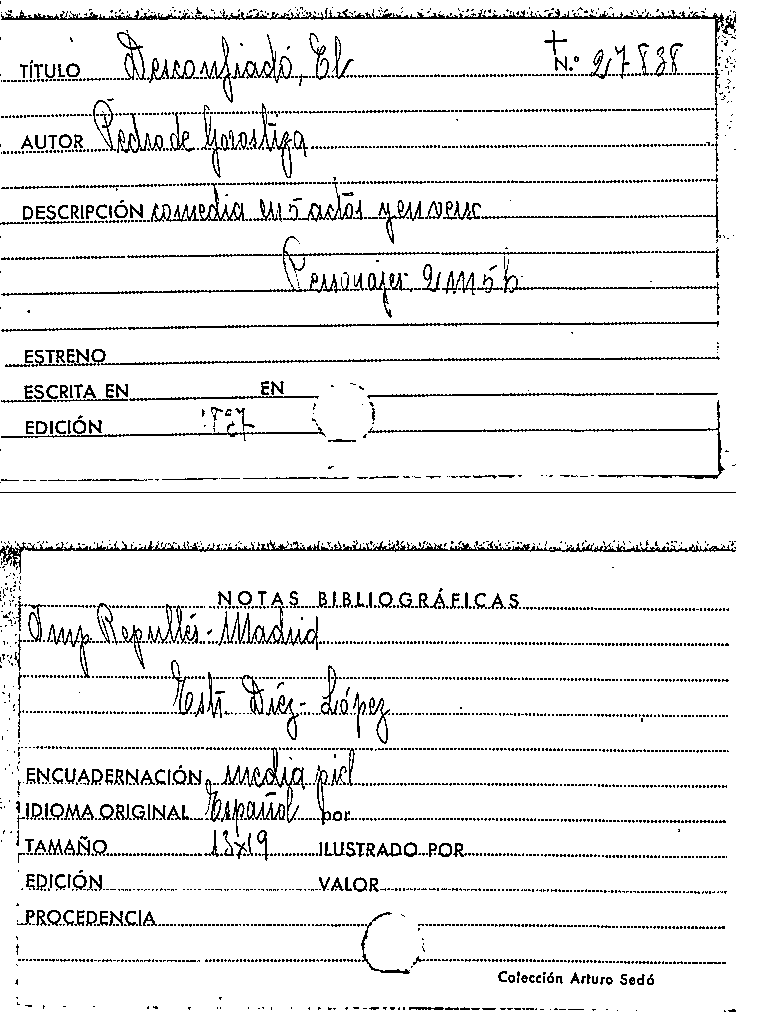 TÍTULO Desconfiado, El N.º 27838
AUTOR Pedro de Gorostiza
DESCRIPCIÓN comedia en 5 actos y en verso
Personajes 2 m 5 h
ESTRENO
ESCRITA EN EN
EDICIÓN
NOTAS BIBLIOGRÁFICAS
Imp. Repullés - Madrid
Estr. Díez - López
ENCUADERNACIÓN media piel
IDIOMA ORIGINAL Español por
TAMAÑO 13x19 ILUSTRADO POR
EDICIÓN VALOR
PROCEDENCIA
Colección Arturo Sedó